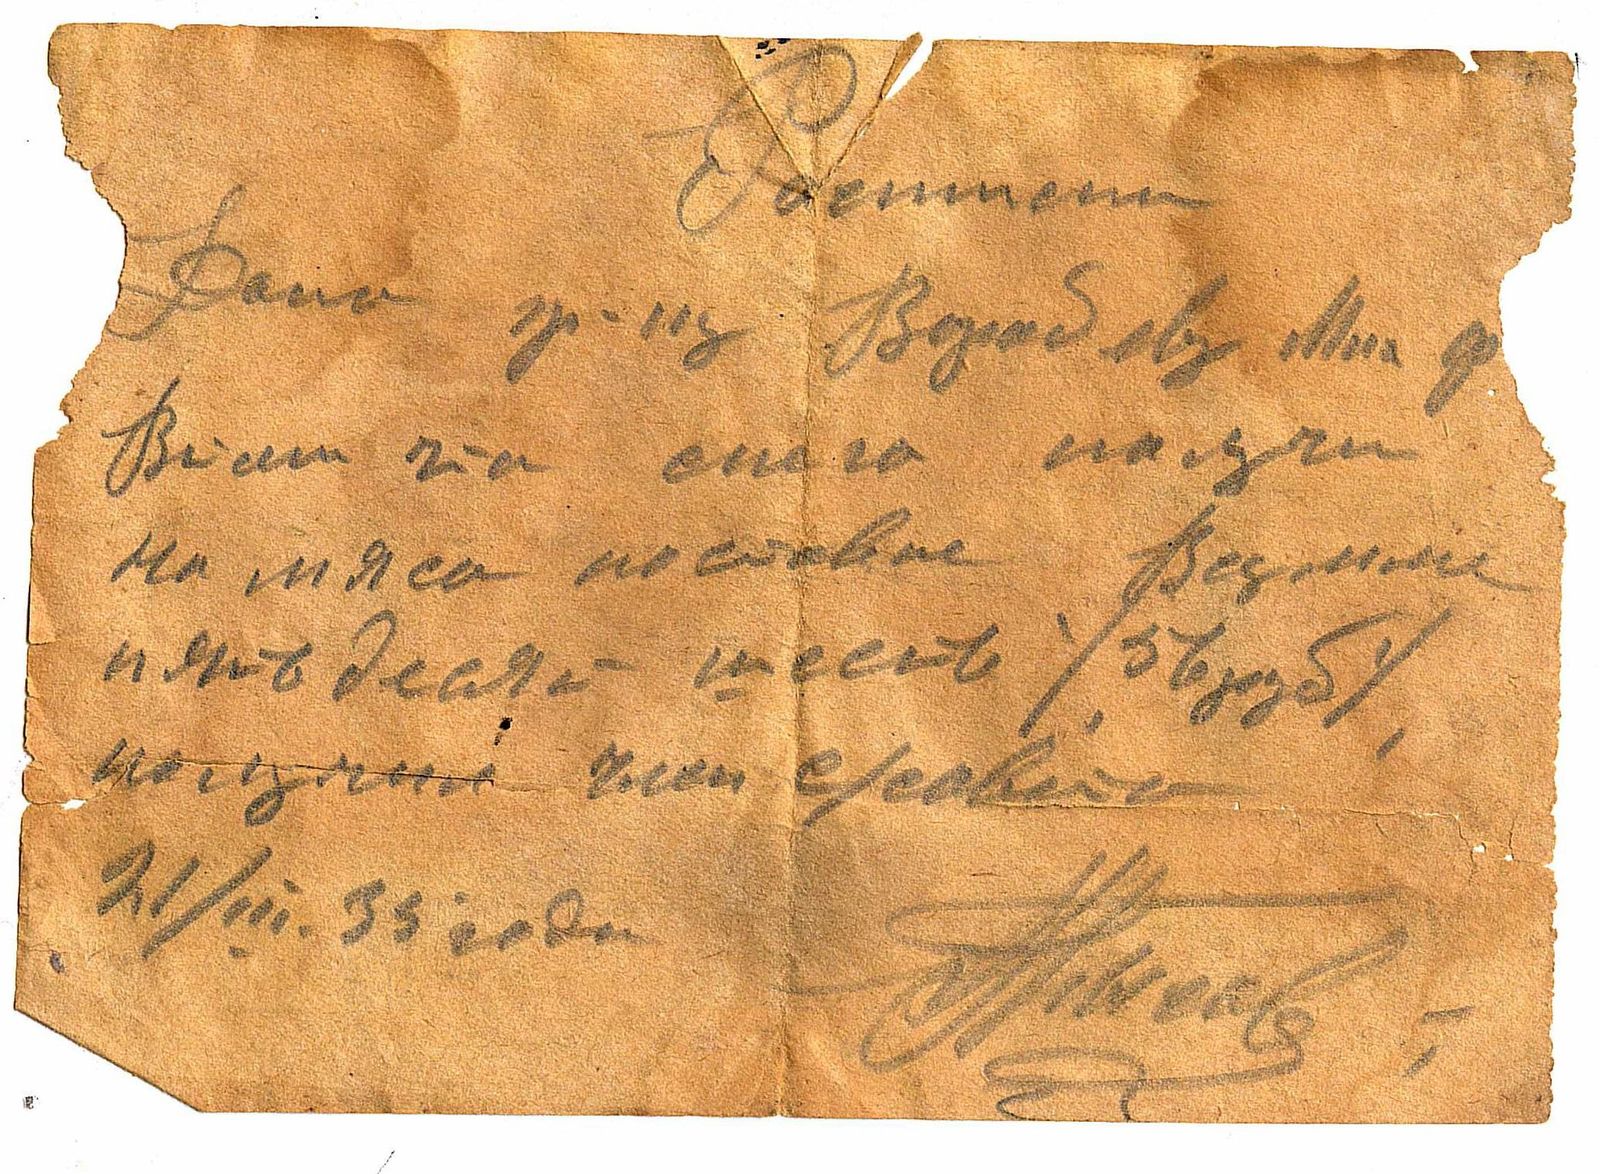 Расписка
Дано гр-ну Воробьеву Мих ф
В том что с него получ
на мясо поставке В сумме
пятьдесят шесть /56 руб/
получил член с/совета
21/III. 35 года